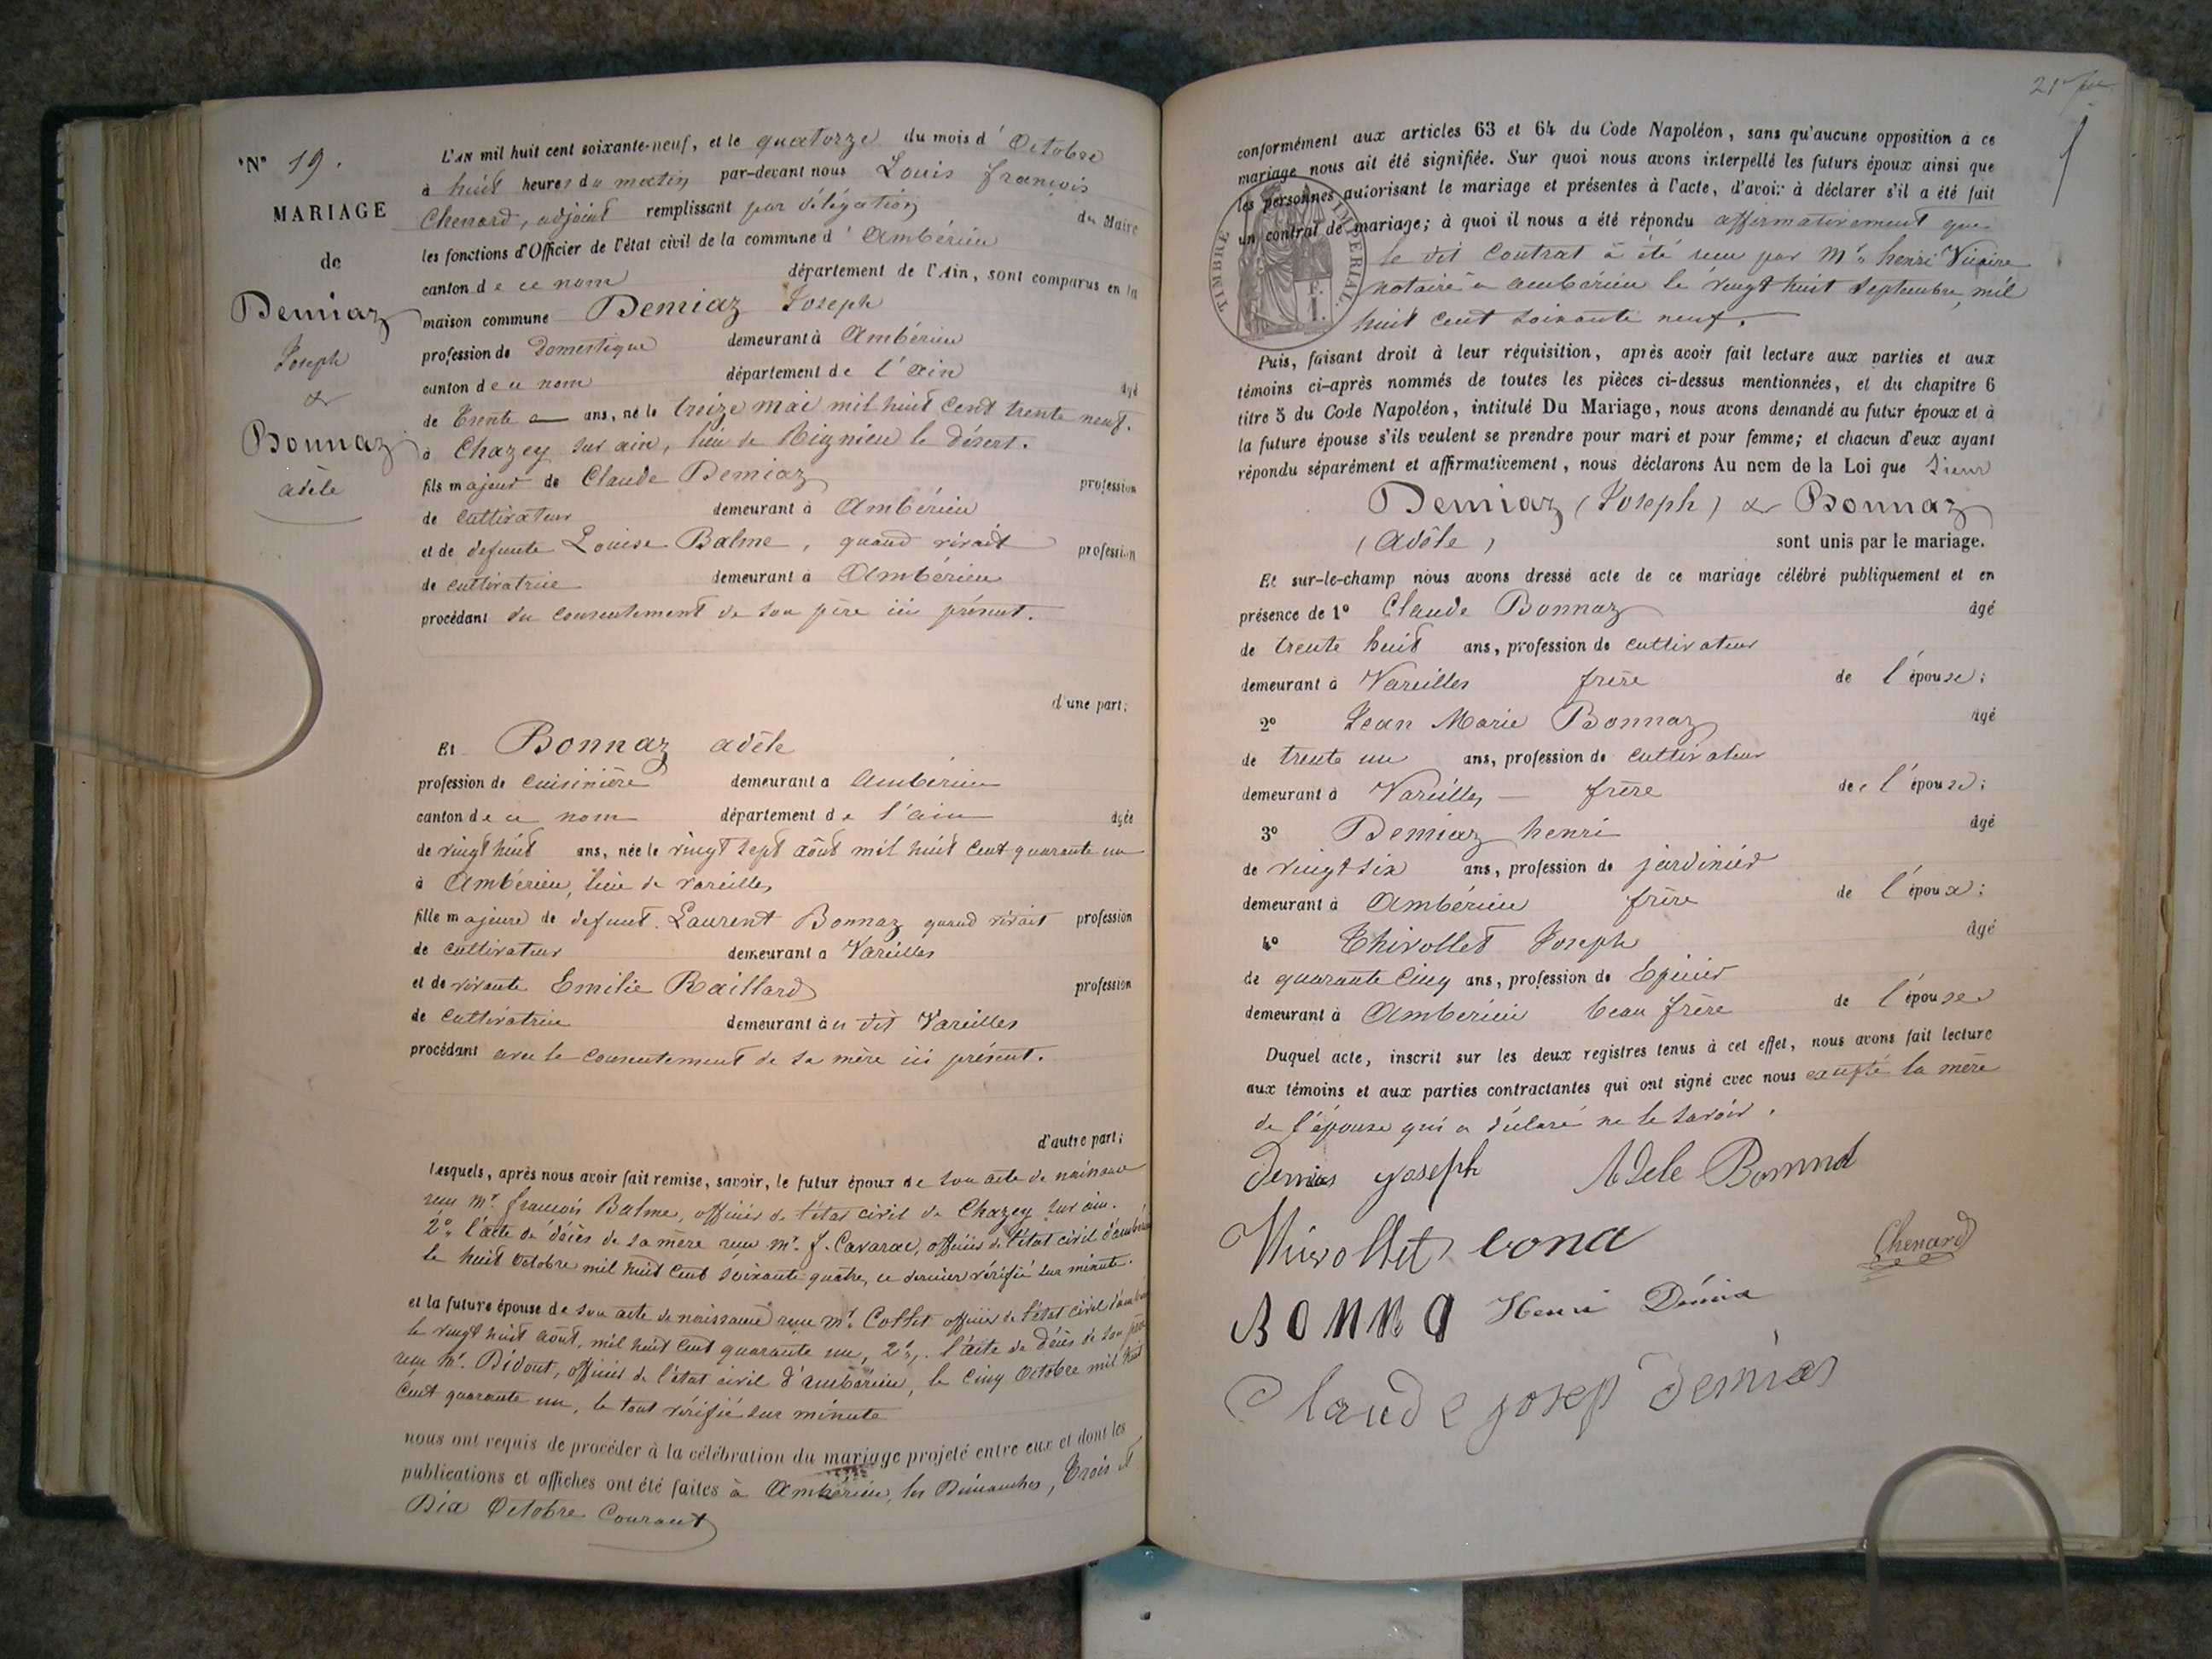 N° 19.
MARIAGE
de
Demiaz
Joseph
&
Bonnaz
adèle
L'AN mil huit cent soixante-neuf, et le quatorze du mois d' Octobre
à huit heures du matin par-devant nous Louis françois
Chenard, adjoint remplissant par délégation du Maire
les fonctions d'Officier de l'état civil de la commune d' Ambérieu
canton de ce nom département de l'Ain, sont comparus en la
maison commune Demiaz Joseph
profession de Domestique demeurant à Ambérieu
canton de ce nom département de l'ain âgé
de trente ans, né le treize mai mil huit cent trente neuf.
à Chazey sur ain, lieu de Rignieu le désert.
fils majeur de Claude Demiaz profession
de cultivateur demeurant à Ambérieu
et de defunte Louise Balme, quand vivait profession
de cultivatrice demeurant à Ambérieu
procédant du consentement de son père ici présent.
d'une part;
Et Bonnaz adèle
profession de cuisinière demeurant à Ambérieu
canton de ce nom département de l'ain âgée
de vingt huit ans, née le vingt sept août mil huit cent quarante un
à Ambérieu, lieu de vareilles
fille majeure de defunt Laurent Bonnaz quand vivait profession
de cultivateur demeurant à Vareilles
et de vivante Emilie Raillard profession
de cultivatrice demeurant à u dit Vareilles
procédant avec le consentement de sa mère ici présent.
d'autre part;
lesquels, après nous avoir fait remise, savoir, le futur époux de son acte de naissance
reçu Mr. françois Balme, officier de l'état civil de Chazey sur ain.
2° l'acte de décès de sa mère reçu Mr. J. Cavarac, officier de l'état civil d'ambérieu
le huit Octobre mil huit cent soixante quatre, ce dernier vérifié sur minute.
et la future épouse de son acte de naissance reçu Mr. Collet officier de l'état civil d'ambérieu
le vingt huit août, mil huit cent quarante un, 2°, l'acte de décès de son père
reçu Mr. Bidout, officier de l'état civil d'ambérieu, le cinq Octobre mil huit
cent quarante un, le tout vérifié sur minute
nous ont requis de procéder à la célébration du mariage projeté entre eux et dont les
publications et affiches ont été faites à Ambérieu, les Dimanches, Trois et
Dix Octobre Courant
conformément aux articles 63 et 64 du Code Napoléon, sans qu'aucune opposition à ce
mariage nous ait été signifiée. Sur quoi nous avons interpellé les futurs époux ainsi que
les personnes autorisant le mariage et présentes à l'acte, d'avoir à déclarer s'il a été fait
un contrat de mariage; à quoi il nous a été répondu affirmativement que
le dit Contrat à été reçu par Mr. henri Vicaire
notaire à ambérieu le vingt huit Septembre, mil
huit cent soixante neuf.
TIMBRE IMPERIAL
Puis, faisant droit à leur réquisition, après avoir fait lecture aux parties et aux
témoins ci-après nommés de toutes les pièces ci-dessus mentionnées, et du chapitre 6
titre 5 du Code Napoléon, intitulé Du Mariage, nous avons demandé au futur époux et à
la future épouse s'ils veulent se prendre pour mari et pour femme; et chacun d'eux ayant
répondu séparément et affirmativement, nous déclarons Au nom de la Loi que Sieur
Demiaz (Joseph) & Bonnaz
(Adèle) sont unis par le mariage.
Et sur-le-champ nous avons dressé acte de ce mariage célébré publiquement et en
présence de 1° Claude Bonnaz âgé
de trente huit ans, profession de cultivateur
demeurant à Vareilles frère de l'épouse;
2° Jean Marie Bonnaz âgé
de trente un ans, profession de cultivateur
demeurant à Vareilles frère de l'épouse;
3° Demiaz henri âgé
de vingt six ans, profession de jardinier
demeurant à Ambérieu frère de l'époux;
4° Thivollet Joseph âgé
de quarante cinq ans, profession de Epicier
demeurant à Ambérieu beau frère de l'épouse
Duquel acte, inscrit sur les deux registres tenus à cet effet, nous avons fait lecture
aux témoins et aux parties contractantes qui ont signé avec nous excepté la mère
de l'épouse qui a déclaré ne le savoir.
Demias joseph Adele Bonna
Thivollet bona Chenard
BONNA Henri Démia
Claude josep demias